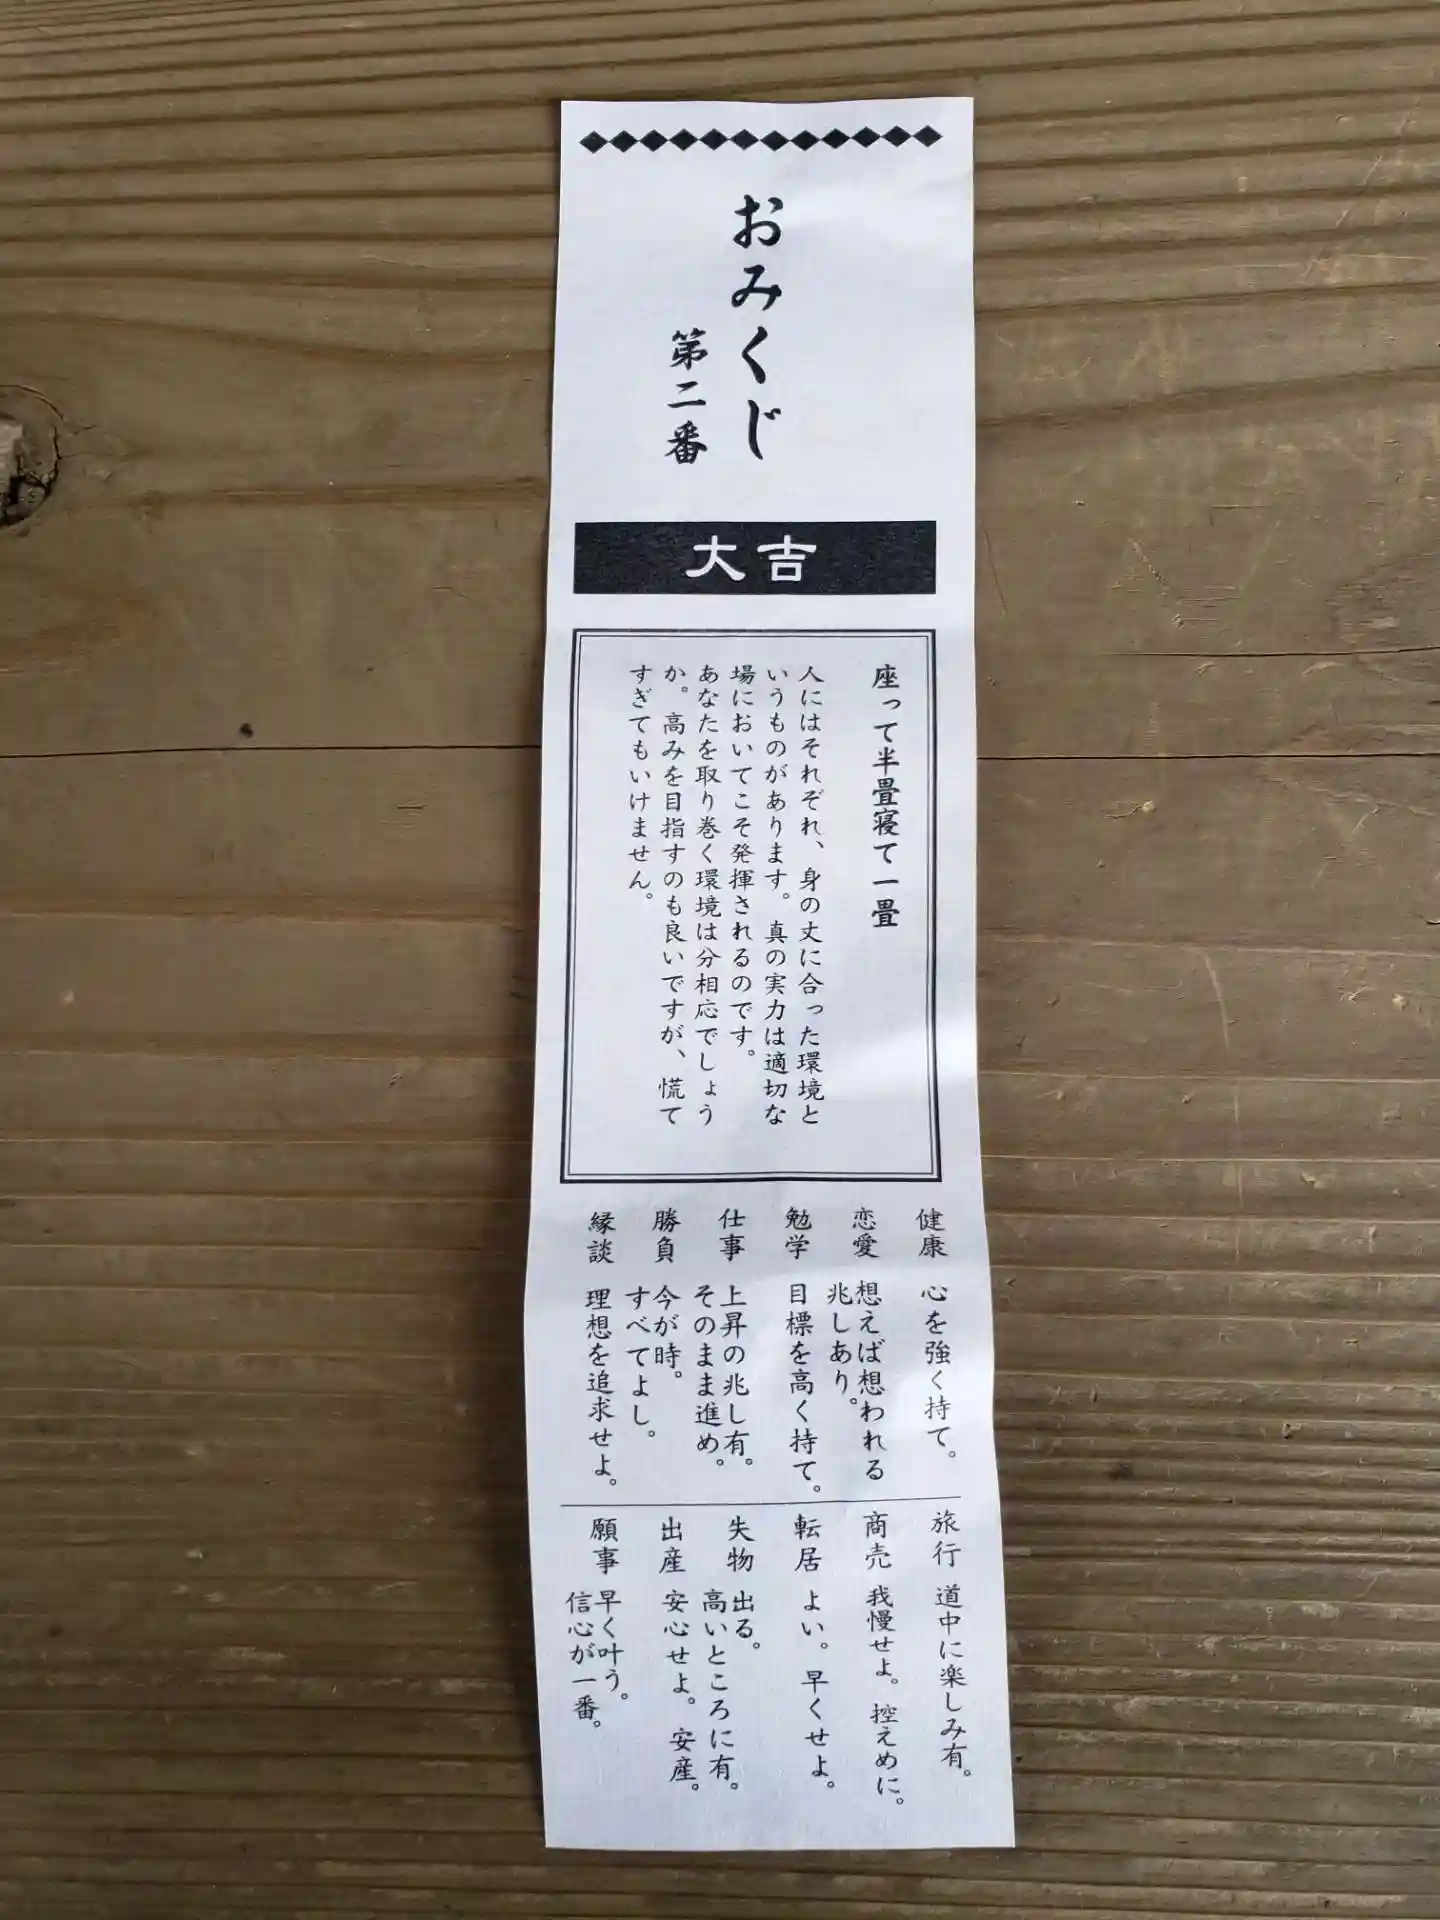 おみくじ
第二番
大吉
座って半畳寝て一畳
人にはそれぞれ、身の丈に合った環境と
いうものがあります。真の実力は適切な
場においてこそ発揮されるのです。
あなたを取り巻く環境は分相応でしょう
か。高みを目指すのも良いですが、慌て
すぎてもいけません。
健康 心を強く持て。
恋愛 想えば想われる
兆しあり。
勉学 目標を高く持て。
仕事 上昇の兆し有。
そのまま進め。
勝負 今が時。
すべてよし。
縁談 理想を追求せよ。
旅行 道中に楽しみ有。
商売 我慢せよ。控えめに。
転居 よい。早くせよ。
失物 出る。
高いところに有。
出産 安心せよ。安産。
願事 早く叶う。
信心が一番。